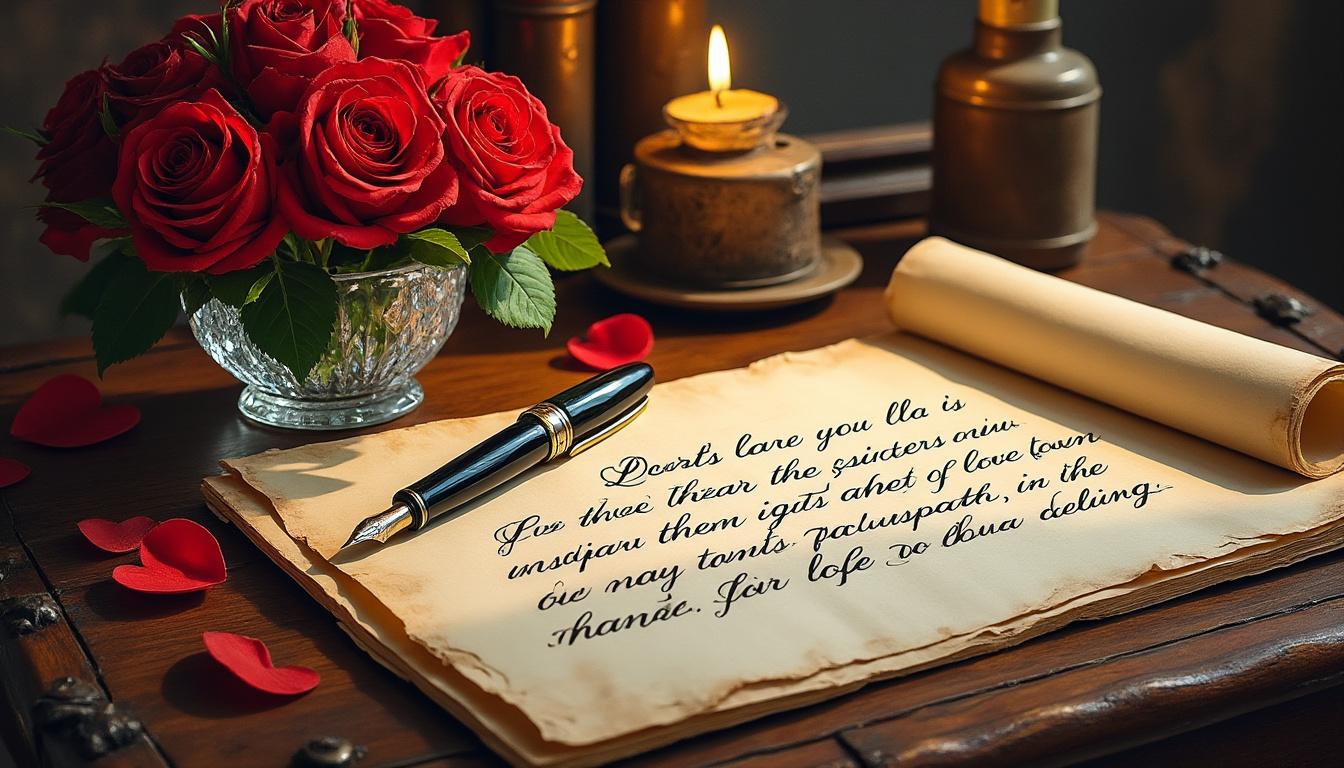 Dearts lare you lla is
for thee thear the ssincters oniw
unsdjaru them igits ahet of love town
oie nay tomts. paduuspath, in the
rhanie. for lofe do bbua deliing.